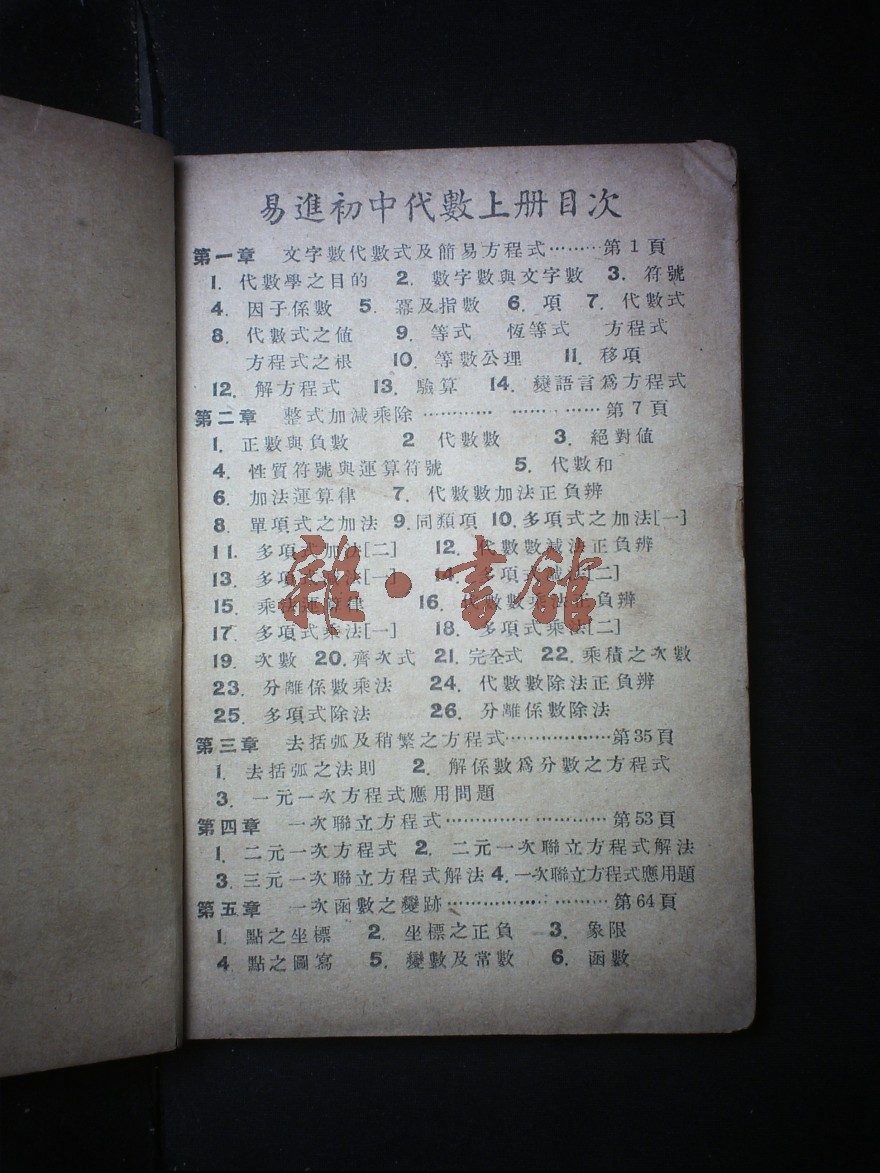 易進初中代數上册目次
第一章　文字數代數式及簡易方程式………第1頁
1. 代數學之目的　2. 數字數與文字數　3. 符號
4. 因子係數　5. 冪及指數　6. 項　7. 代數式
8. 代數式之值　9. 等式　恆等式　方程式
方程式之根　10. 等數公理　11. 移項
12. 解方程式　13. 驗算　14. 變語言爲方程式
第二章　整式加減乘除…………　……………第7頁
1. 正數與負數　2 代數數　3. 絕對值
4. 性質符號與運算符號　5. 代數和
6. 加法運算律　7. 代數數加法正負辨
8. 單項式之加法 9.同類項 10.多項式之加法[一]
11. 多項式加法[二]　12. 代數數減法正負辨
13. 多項式減法[一]　14. 多項式減法[二]
15. 乘法運算律　16. 代數數乘法正負辨
17. 多項式乘法[一]　18. 多項式乘法[二]
19. 次數 20.齊次式 21.完全式 22.乘積之次數
23. 分離係數乘法　24. 代數數除法正負辨
25. 多項式除法　26. 分離係數除法
第三章　去括弧及稍繁之方程式………………第35頁
1. 去括弧之法則　2. 解係數爲分數之方程式
3. 一元一次方程式應用問題
第四章　一次聯立方程式…………… …………第53頁
1. 二元一次方程式 2. 二元一次聯立方程式解法
3. 三元一次聯立方程式解法 4.一次聯立方程式應用題
第五章　一次函數之變跡………………… ………第64頁
1. 點之坐標　2. 坐標之正負　3. 象限
4. 點之圖寫　5. 變數及常數　6. 函數
雜·書館